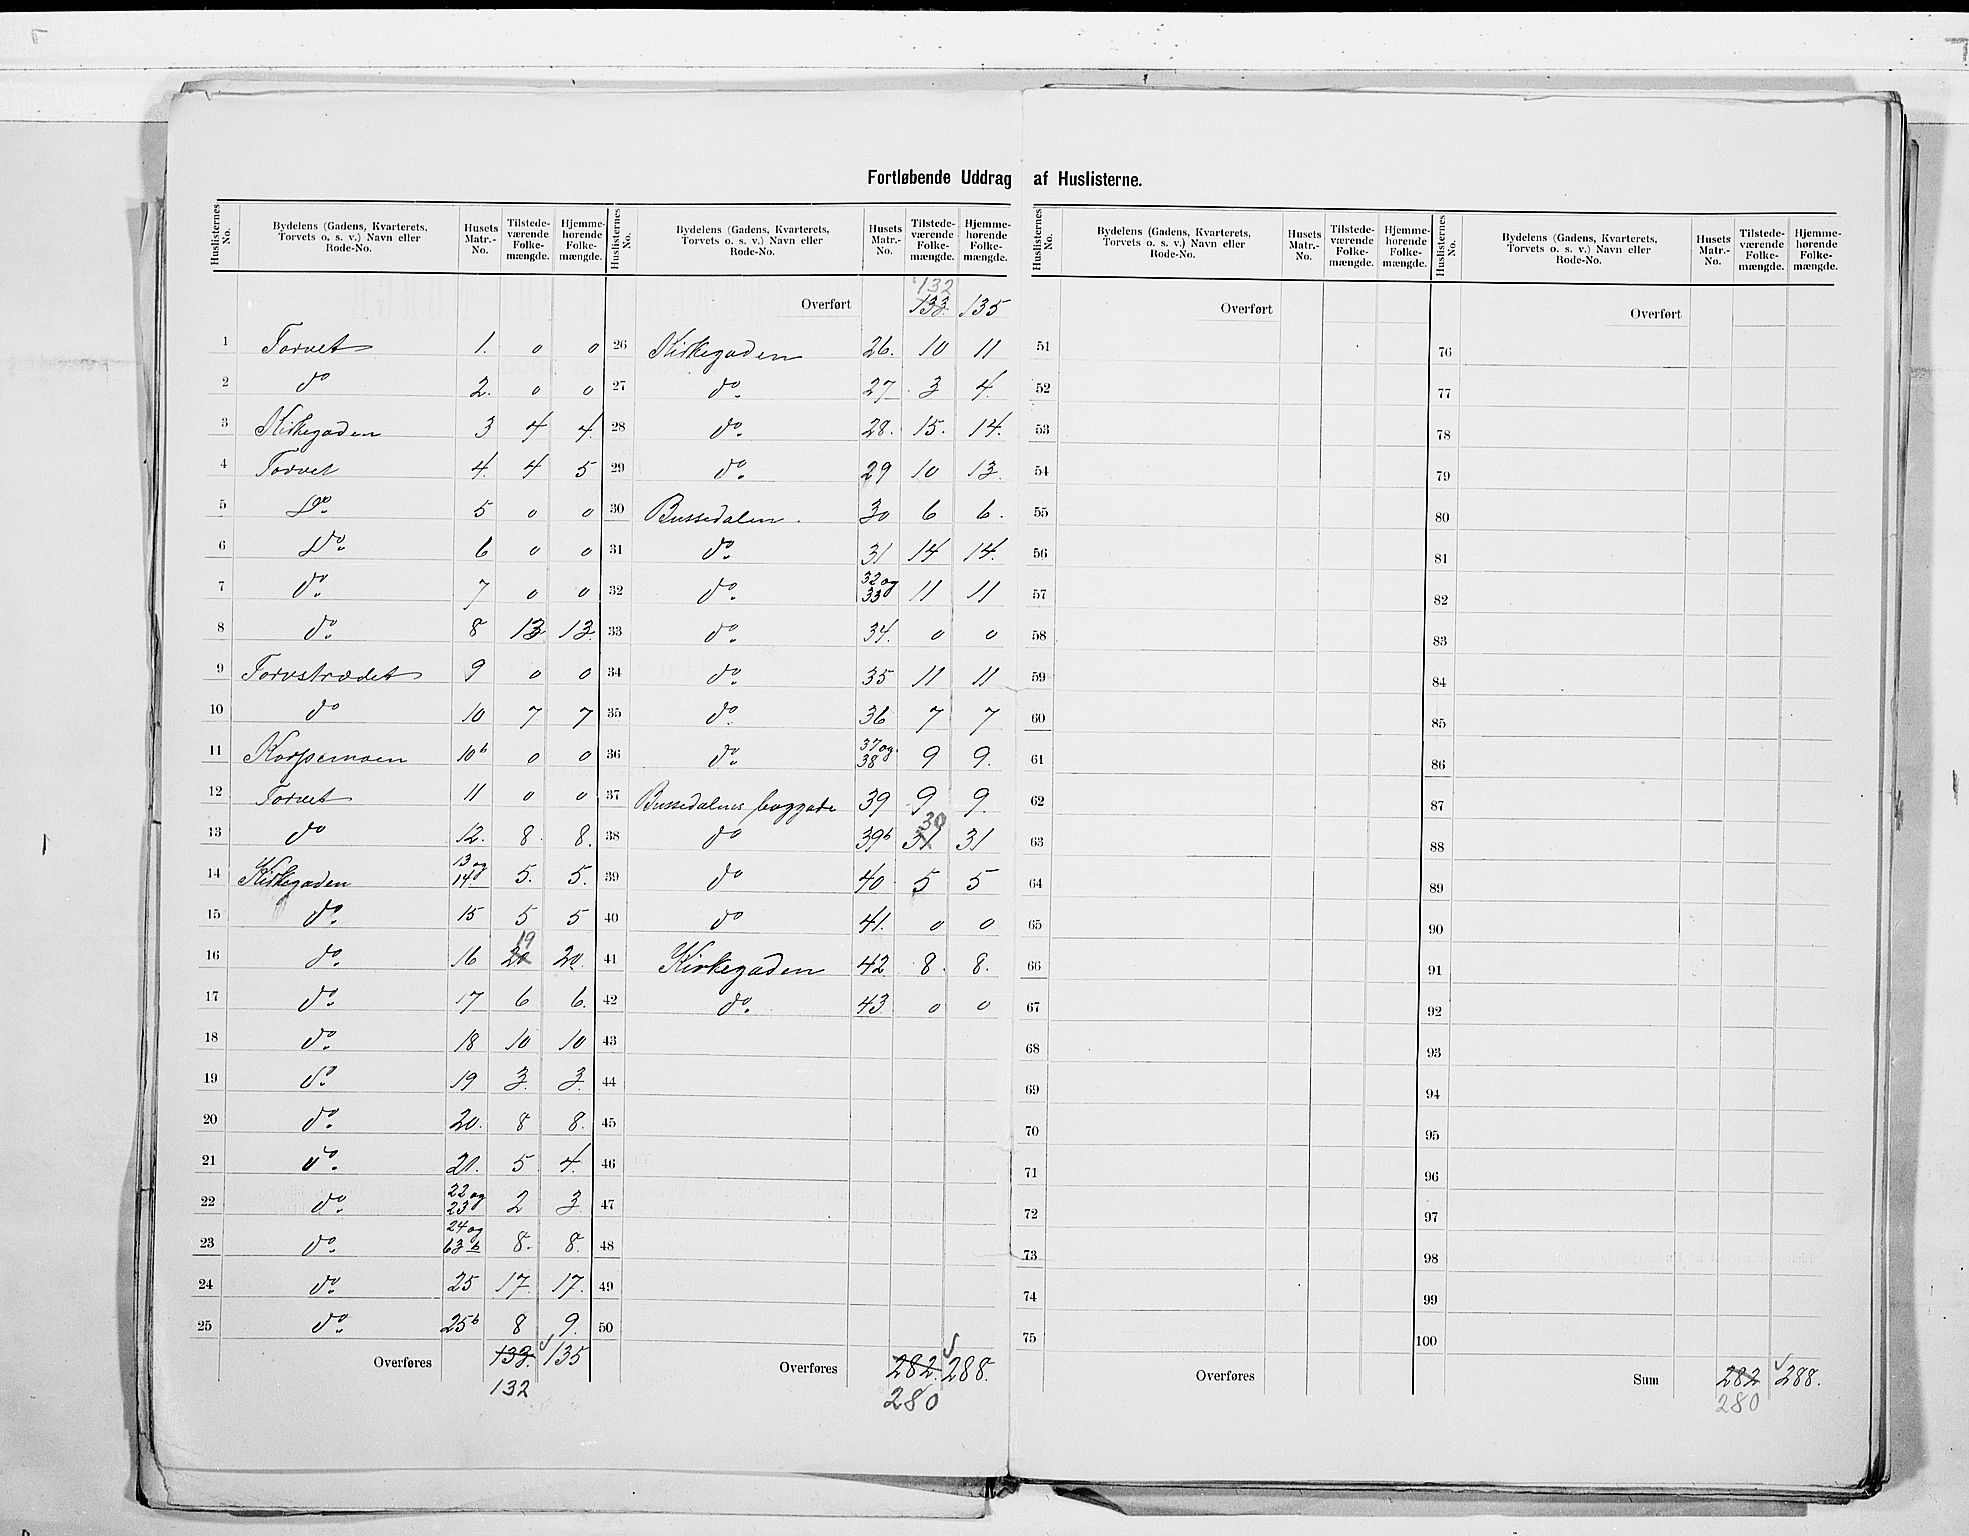 Fortløbende Uddrag af Huslisterne.
Huslisternes No. | Bydelens (Gadens, Kvarterets, Torvets o. s. v.) Navn eller Rode-No. | Husets Matr.-No. | Tilstede-værende Folke-mængde. | Hjemme-hørende Folke-mængde.
1 Torvet 1. 0 0
2 do 2. 0 0
3 Kirkegaden 3 4 4.
4 Torvet 4. 4 5
5 Do 5 0 0
6 Do 6 0 0
7 do 7 0 0
8 do 8 13 13.
9 Torvstrædet 9 0 0
10 do 10 7 7
11 Korpemoen 10b 0 0
12 Torvet 11 0 0
13 do 12. 8. 8.
14 Kirkegaden 13 og 14. 5. 5.
15 do 15 5 5
16 do 16 20 19 20.
17 do 17 6 6.
18 do 18 10 10
19 do 19 3. 3.
20 do 20. 8 8.
21 do 21. 5 4.
22 do 22 og 23 2 3.
23 do 24 og 63b 8. 8.
24 do 25 17. 17.
25 do 25b 8 9.
Overføres 133. 135
132
Huslisternes No. | Bydelens (Gadens, Kvarterets, Torvets o. s. v.) Navn eller Rode-No. | Husets Matr.-No. | Tilstede-værende Folke-mængde. | Hjemme-hørende Folke-mængde.
132
Overført 133. 135
26 Kirkegaden 26. 10 11
27 do 27 3 4.
28 do 28. 15. 14.
29 do 29 10 13.
30 Bussedalen. 30 6 6.
31 do 31 14 14.
32 do 32 og 33 11 11
33 do 34. 0 0
34 do 35 11 11
35 do 36 7 7
36 do 37 og 38 9 9.
37 Bussedalens baggade 39 9 9.
38 do 39b 31 30 31
39 do 40 5 5
40 do 41. 0 0
41 Kirkegaden 42 8. 8.
42 do 43 0 0
43
44
45
46
47
48
49
50
Overføres 282. 288.
280
Huslisternes No. | Bydelens (Gadens, Kvarterets, Torvets o. s. v.) Navn eller Rode-No. | Husets Matr.-No. | Tilstede-værende Folke-mængde. | Hjemme-hørende Folke-mængde.
Overført
51
52
53
54
55
56
57
58
59
60
61
62
63
64
65
66
67
68
69
70
71
72
73
74
75
Overføres
Huslisternes No. | Bydelens (Gadens, Kvarterets, Torvets o. s. v.) Navn eller Rode-No. | Husets Matr.-No. | Tilstede-værende Folke-mængde. | Hjemme-hørende Folke-mængde.
Overført
76
77
78
79
80
81
82
83
84
85
86
87
88
89
90
91
92
93
94
95
96
97
98
99
100
Sum 282 288.
280